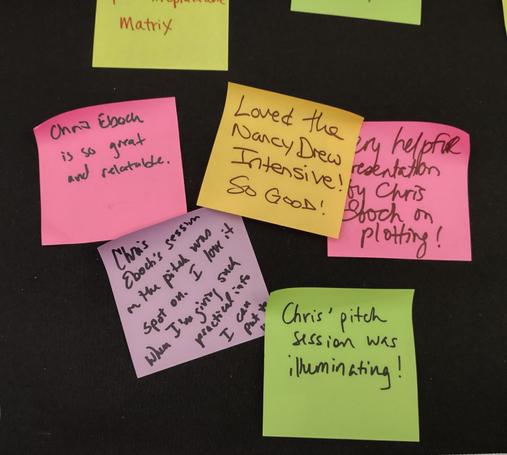 Matrix
Chris Eboch
is so great
and relatable.
Loved the
Nancy Drew
Intensive!
So GOOD!
ery helpful
resentation
by Chris
Eboch on
plotting!
Chris
Eboch's session
on the pitch was
spot on. I love it
when I'm giving such
practical info
I can
put
Chris' pitch
session was
illuminating!